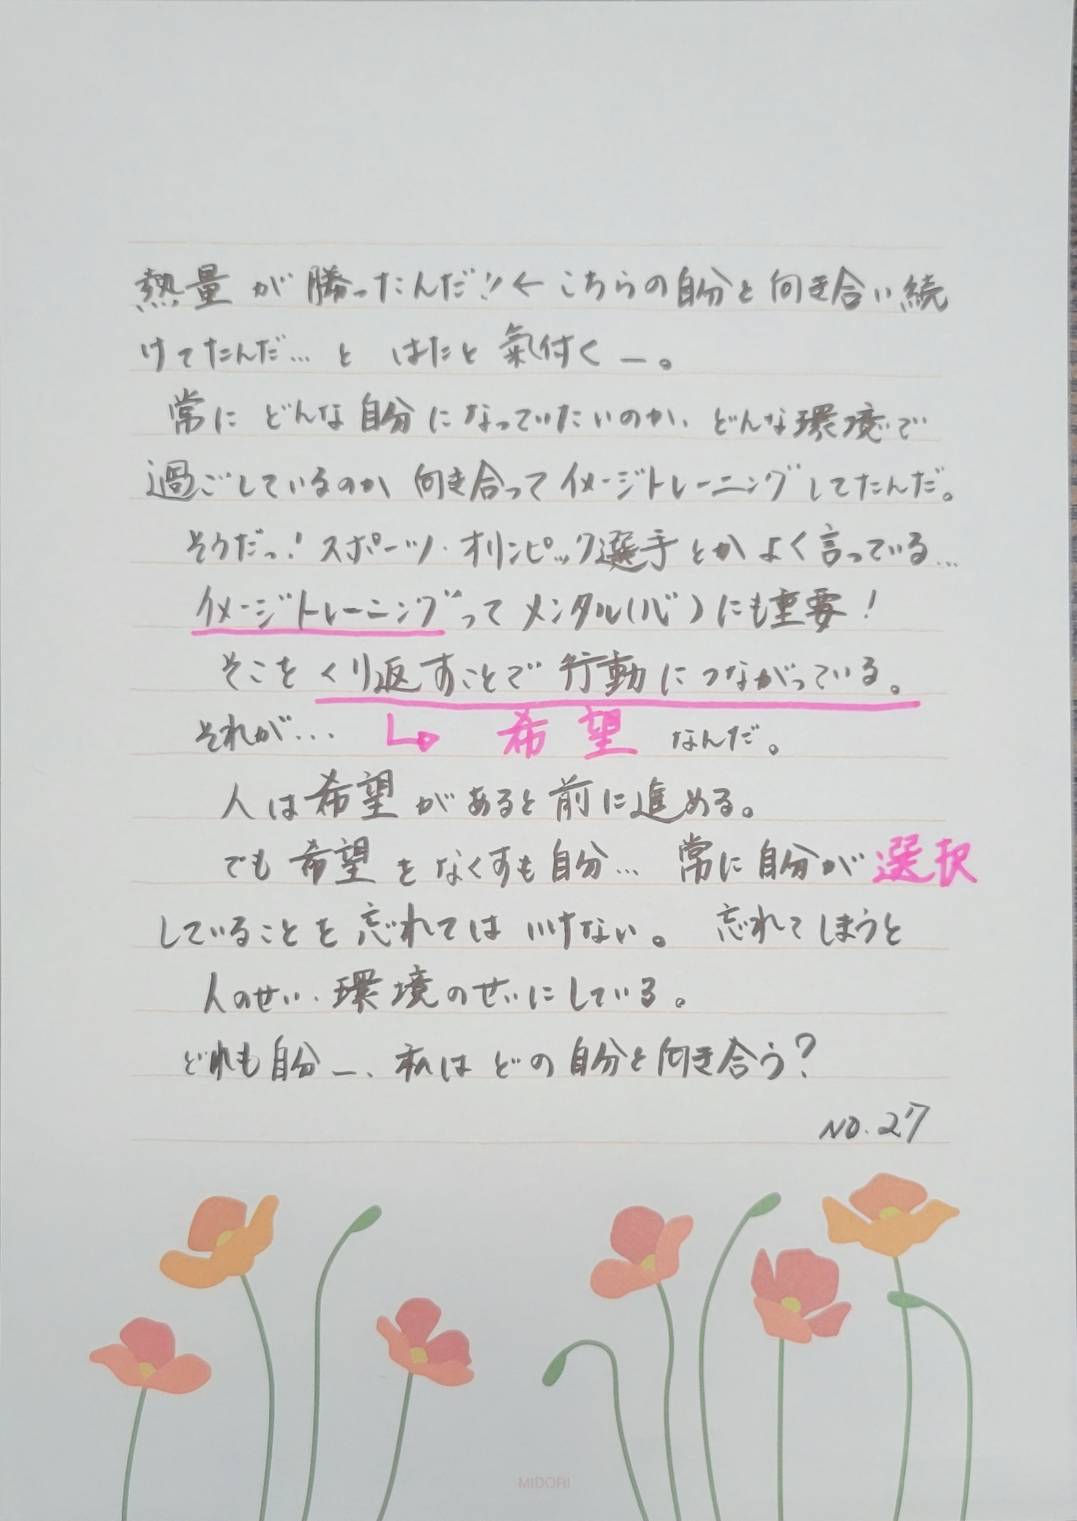 熱量が勝ったんだ!!←こちらの自分と向き合い続
けてたんだ…と はたと氣付くー。
常にどんな自分になっていたいのか、どんな環境で
過ごしているのか 向き合ってイメージトレーニングしてたんだ。
そうだっ!スポーツ・オリンピック選手とかよく言っている…
イメージトレーニングってメンタル(心)にも重要!
そこをくり返すことで行動につながっている。
それが… ↳ 希望 なんだ。
人は希望があると前に進める。
でも希望をなくすも自分… 常に自分が選択
していることを忘れてはいけない。 忘れてしまうと
人のせい・環境のせいにしている。
どれも自分ー、私はどの自分と向き合う?
NO.27
MIDORI